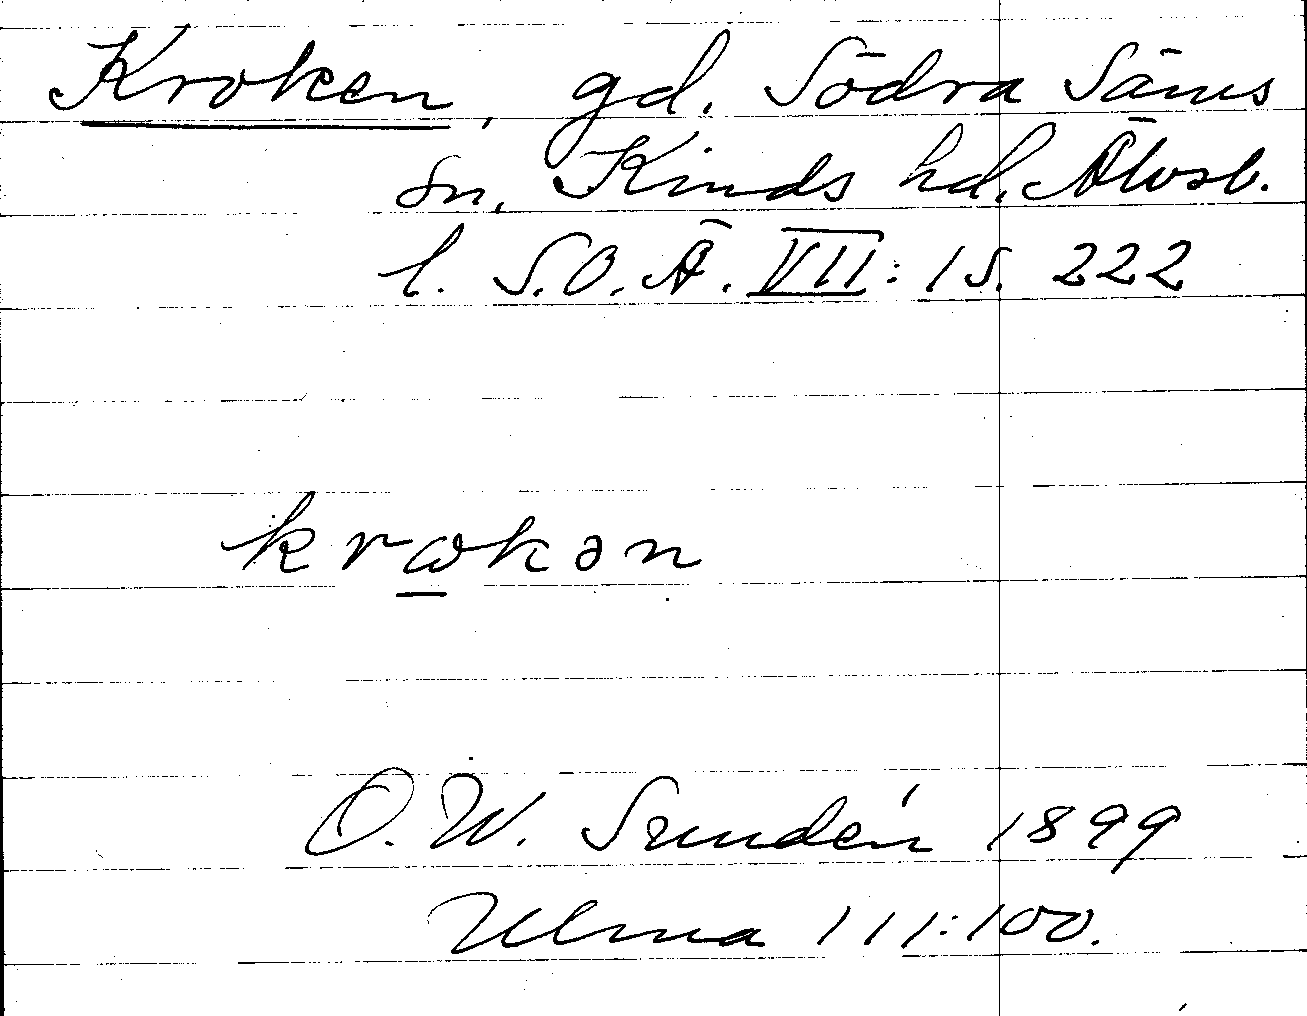 Kroken, gd. Södra Säms
sn, Kinds hd. Älvsb.
l. S.O.Ä. VII: 1 S. 222
krωkən
O.W. Sundén 1899
Ulma 111:100.